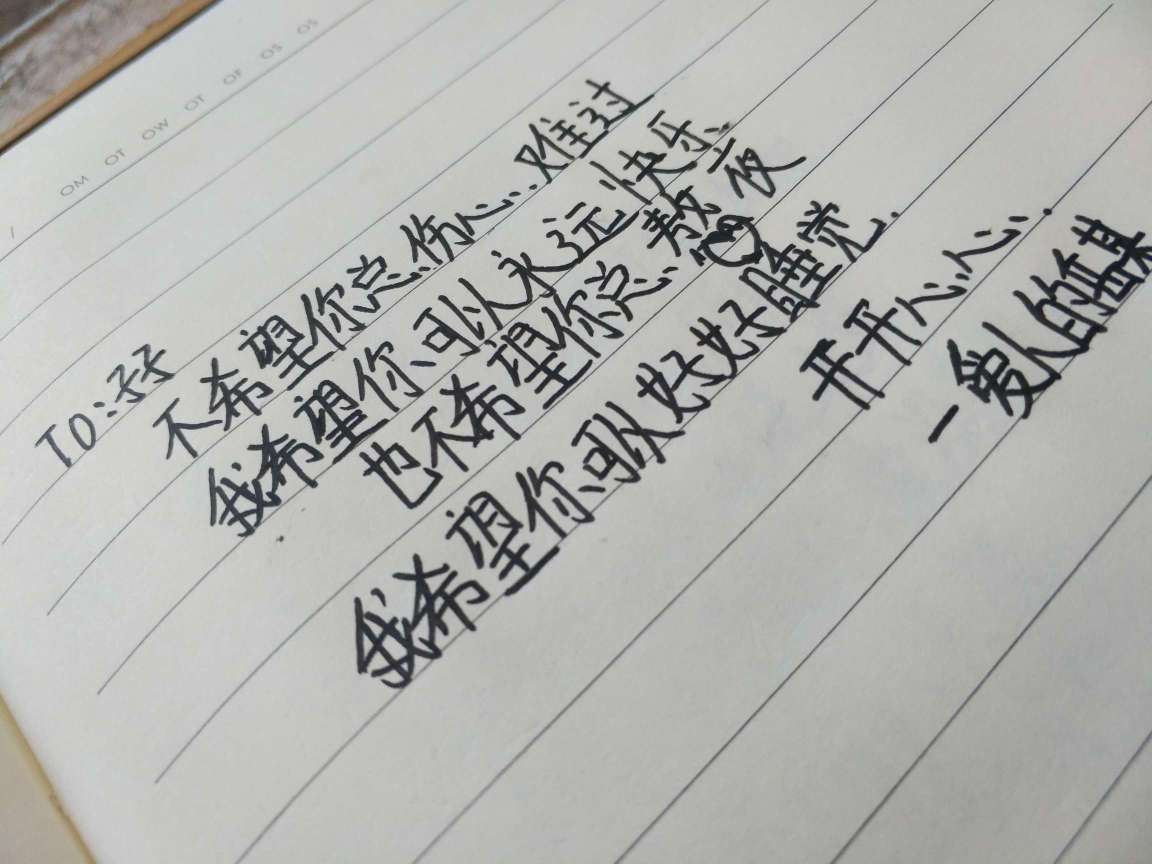 OM OT OW OT OF OS OS
TO:子子
不希望你总伤心..难过
我希望你可以永远快乐
也不希望你总熬夜
我希望你可以好好睡觉.
开开心心.
一爱人的